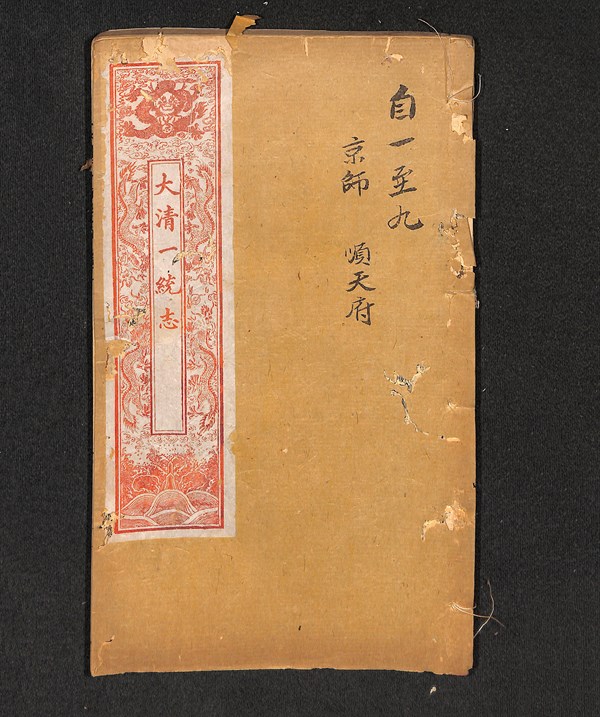 自一至九
京師 順天府
大清一統志